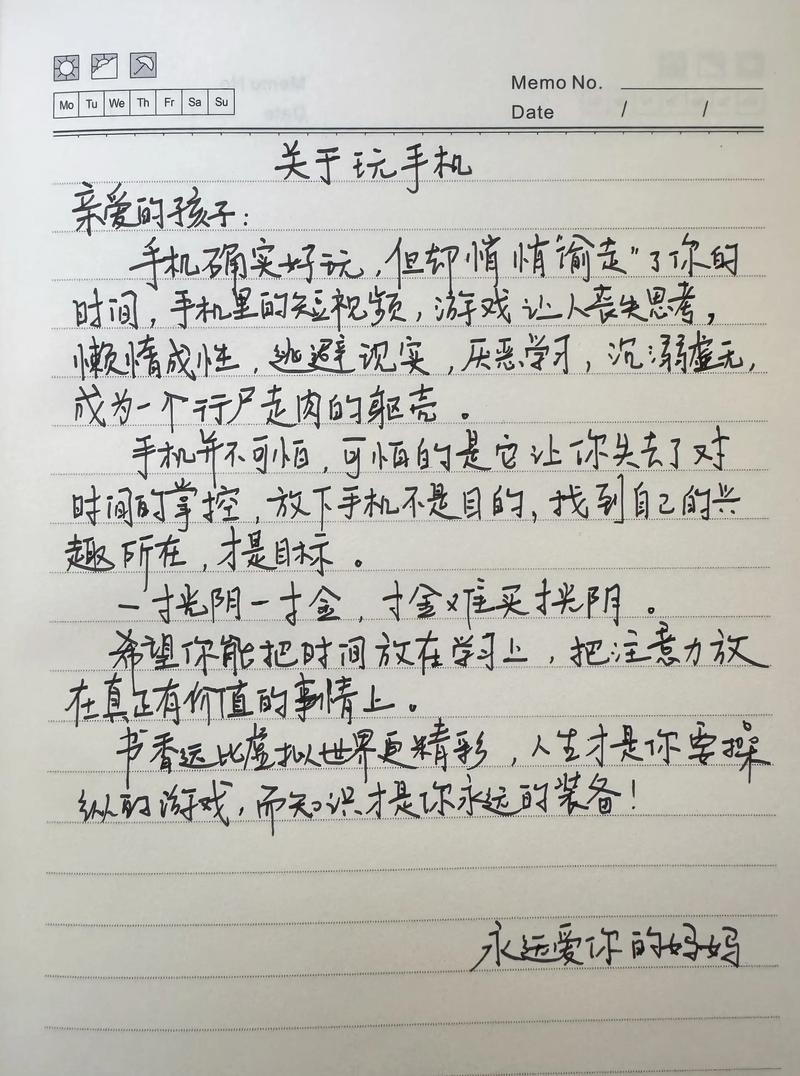 Mo Tu We Th Fr Sa Su
Memo No.
Date / /
关于玩手机
亲爱的孩子:
手机确实好玩,但却悄悄偷走"了你的
时间,手机里的短视频,游戏让人丧失思考,
懒惰成性,逃避现实,厌恶学习,沉溺虚无,
成为一个行尸走肉的躯壳。
手机并不可怕,可怕的是它让你失去了对
时间的掌控,放下手机不是目的,找到自己的兴
趣所在,才是目标。
一寸光阴一寸金,寸金难买寸光阴。
希望你能把时间放在学习上,把注意力放
在真正有价值的事情上。
书香远比虚拟世界更精彩,人生才是你要操
纵的游戏,而知识才是你永远的装备!
永远爱你的妈妈